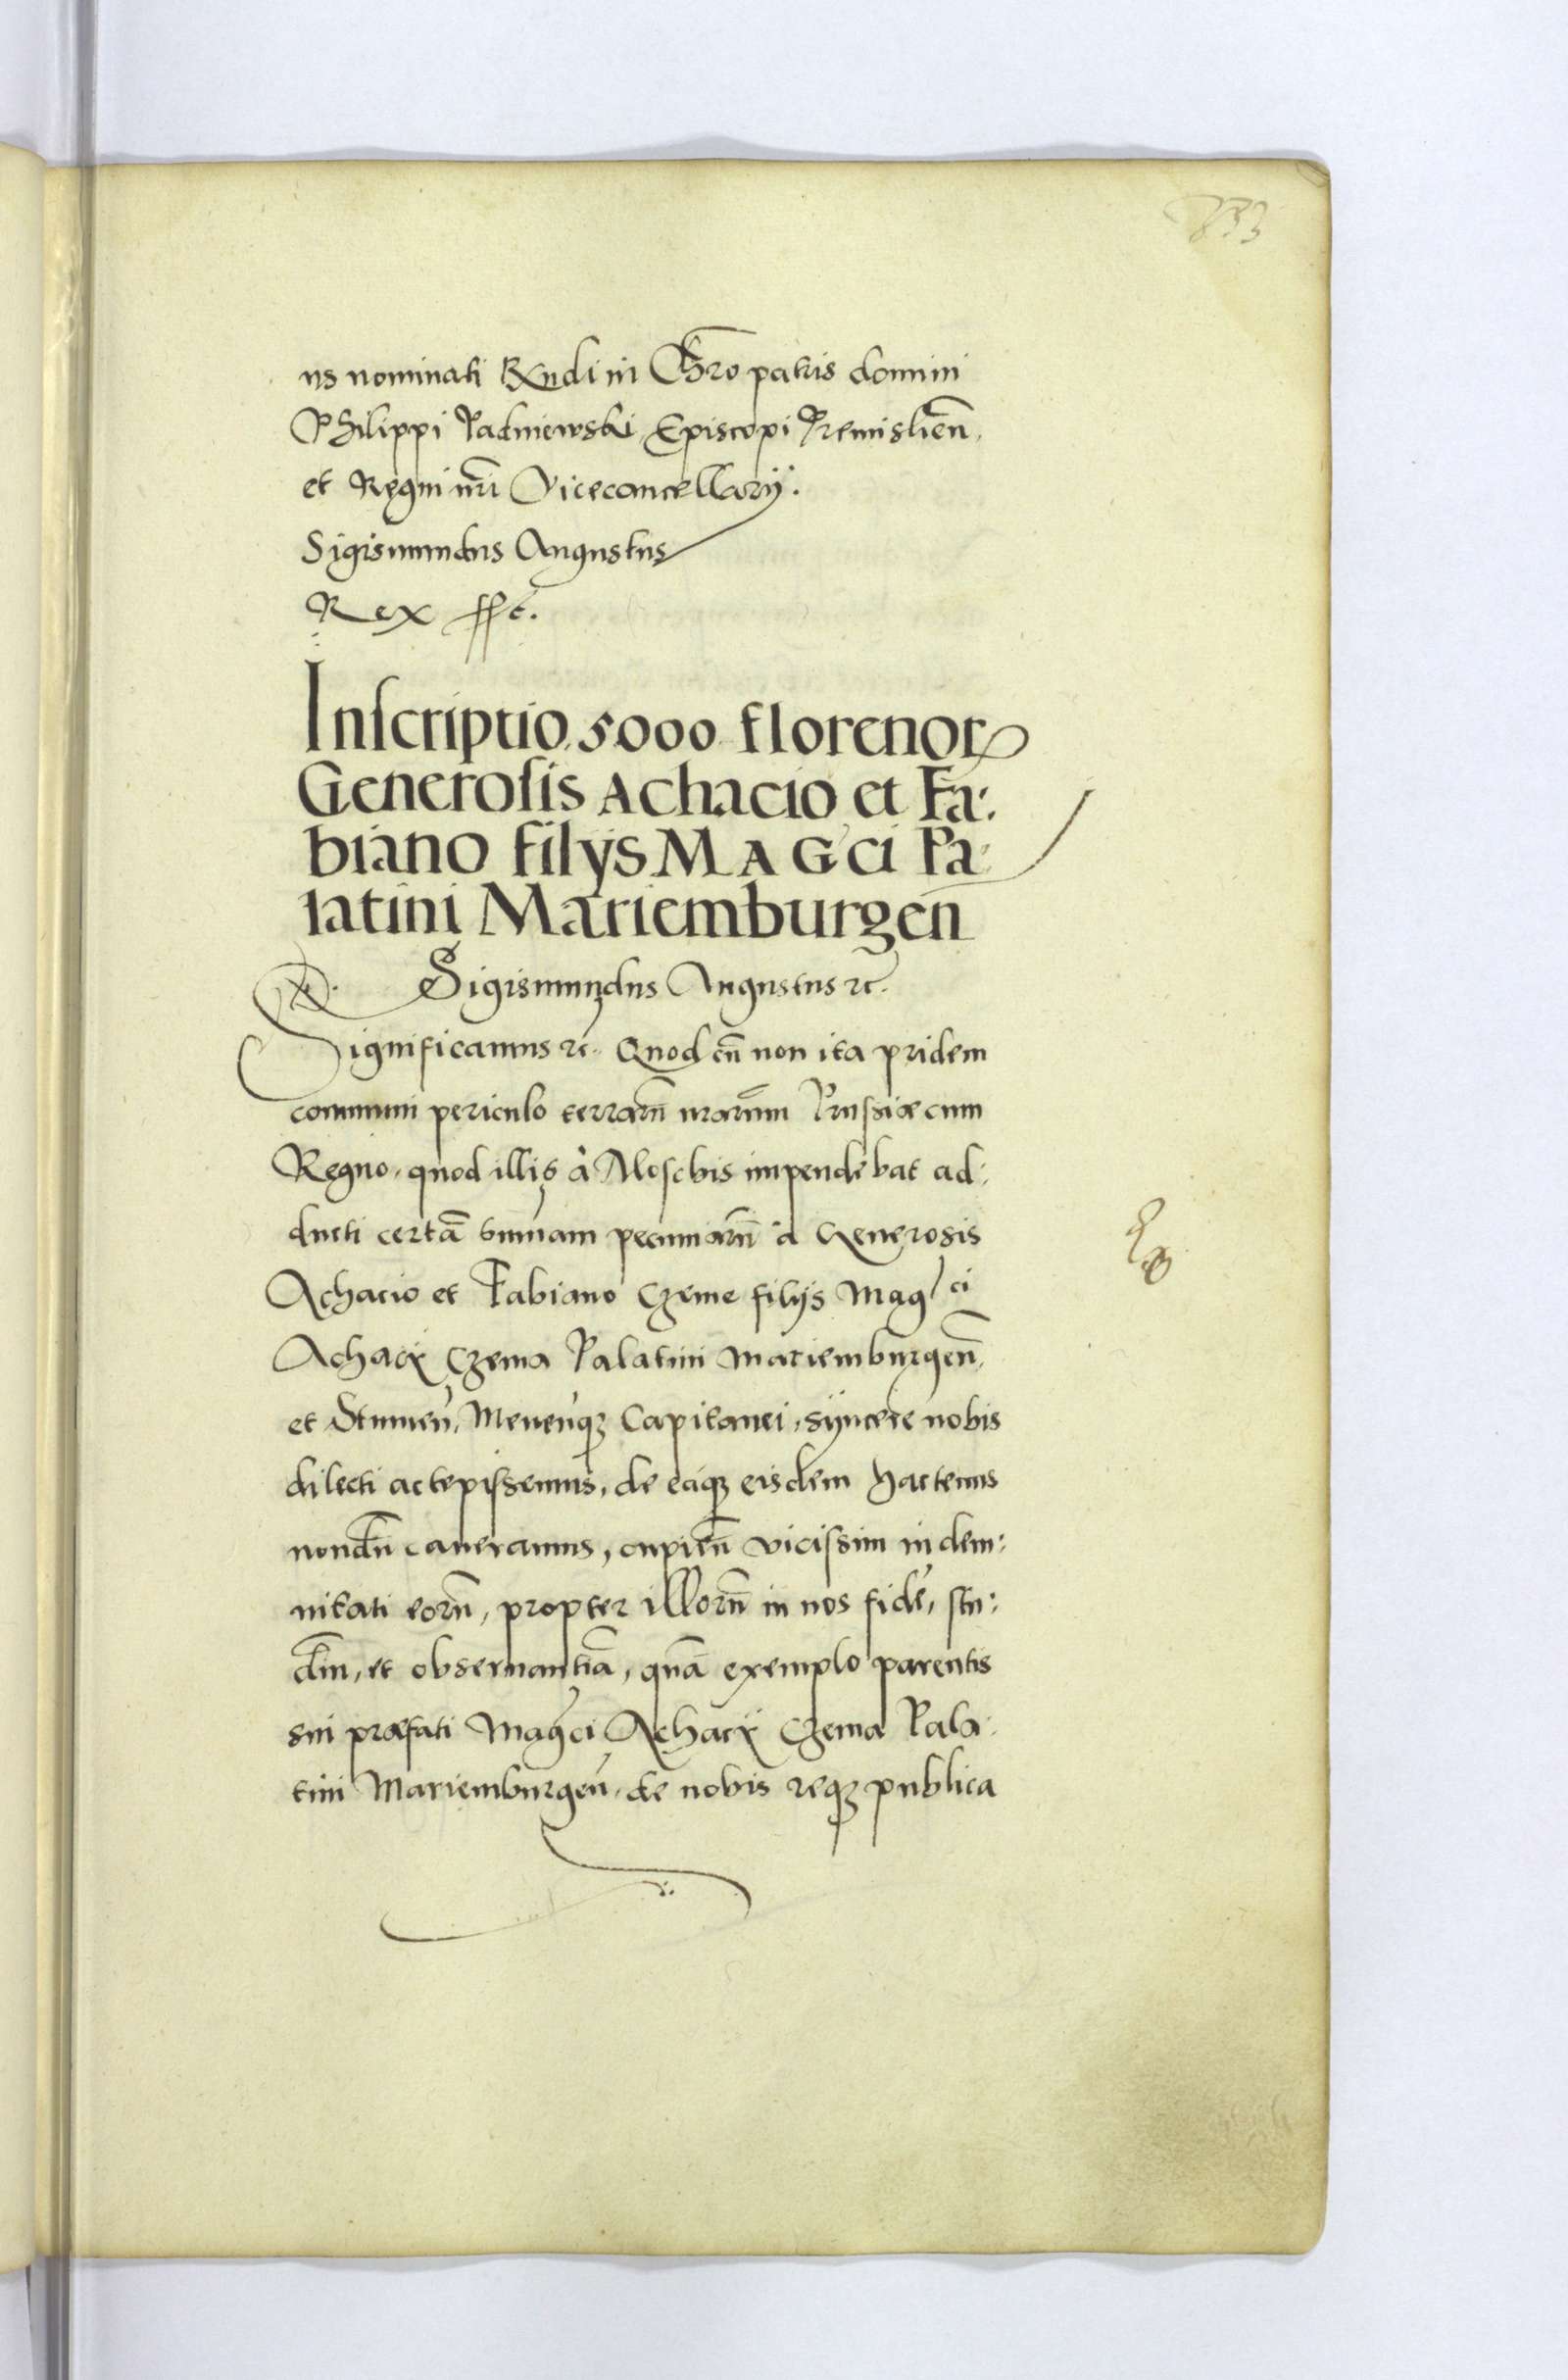 833
us nominati Rndi in Chro patris domini
Philippi Padniewski Episcopi Premislien̄
et Regni nr̄i Vicecancellarij.
Sigismundus Augustus
Rex sst.
Inscriptio 5000 florenor
Generosis Achacio et Fa:
biano filijs MAG'ci Pa:
latini Mariemburgen
Sigismundus Augustus ꝛc.
Significamus ꝛc. Quod cū non ita pridem
communi periculo terrarū nrarum Prussiæ cum
Regno, quod illis à Moschis impendebat ad:
ducti certā sum̄am pecuniarū à Generosis
Achacio et Fabiano Czeme filijs Mag'ci
Achacij Czema Palatini Mariemburgen̄,
et Stumen̄, Meuen̄qꝫ Capitanei, syncere nobis
dilecti accepissemus, de eaqꝫ eisdem hactenus
nondū caueramus, cupien̄ vicissim indem:
nitati eorū, propter illorū in nos fidē, stu:
diū, et obseruantiā, quā exemplo parentis
sui præfati Mag'ci Achacij Czema Pala:
tini Mariemburgen̄, de nobis reqꝫ publica